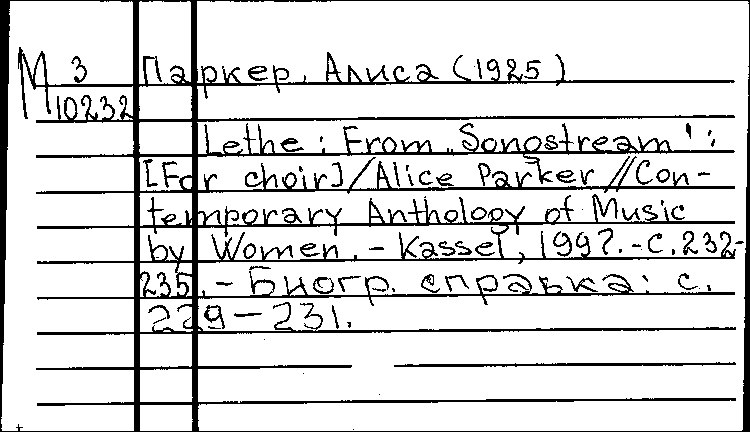 М 3 Паркер, Алиса (1925)
10232
Lethe : From „Songstream" :
[For choir] / Alice Parker // Con-
temporary Anthology of Music
by Women. - Kassel, 1997. - С. 232-
235. - Биогр. справка: с.
229 - 231.